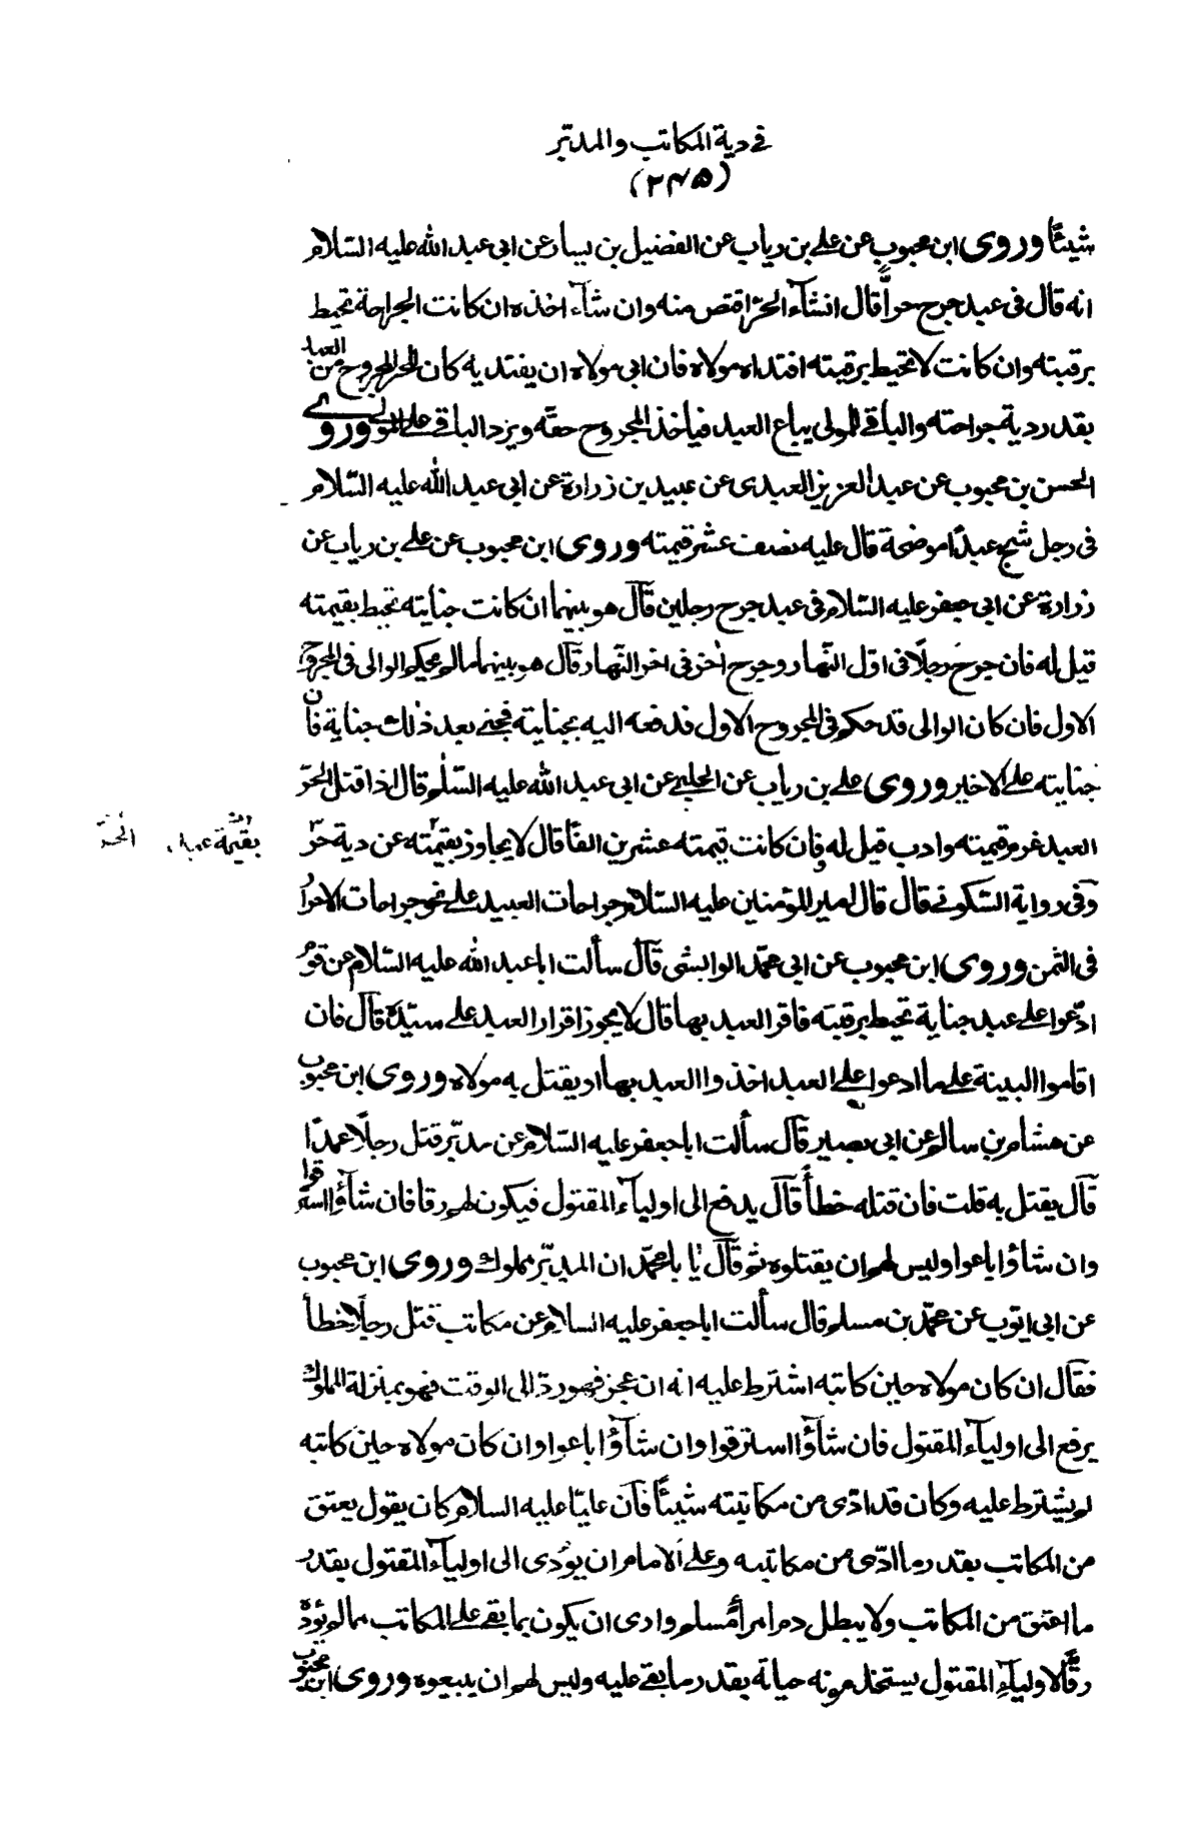 في دية المكاتب والمدبّر
(٢٤٥)
شيئًا وروى ابن محبوب عن علي بن رياب عن الفضيل بن يسار عن ابى عبد الله عليه السّلام
انه قال فى عبد جرح حرّاً قال ان شآء الحرّ اقتص منه وان شآء اخذه ان كانت الجراحة تحيط
برقبته وان كانت لا تحيط برقبته افتداه مولاه فان ابى مولاه ان يفتديه كان للحر المجروح من العبد
بقدر دية جراحته والباقي للمولى يباع العبد فياخذ المجروح حقّه ويرد الباقي على المولى وروى
الحسن بن محبوب عن عبد العزيز العبدى عن عبيد بن زرارة عن ابي عبد الله عليه السّلام
فى رجل شج عبدًا موضحة قال عليه نصف عشر قيمته وروى ابن محبوب عن علي بن رياب عن
زرارة عن ابى جعفر عليه السّلام فى عبد جرح رجلين قآل هو بينهما ان كانت جنايته تحيط بقيمته
قيل له فان جرح رجلًا فى اوّل النّهار وجرح اخر فى اخر النّهار قآل هو بينهما مالم يحكم الوالى فى المجروح
الاول فان كان الوالى قد حكم فى المجروح الاول فدفعه اليه بجنايته فجنى بعد ذلك جناية فان
جنايته على الاخير وروى علي بن رياب عن الحلبي عن ابى عبد الله عليه السّلم قال اذا قتل الحرّ
العبد غرم قيمته وادب قيل له فان كانت قيمته عشرين الفًا قال لا يجاوز بقيمته عن دية حرّ
بقيمة عبد
وفى رواية السّكوني قال قال امير المؤمنين عليه السّلام جراحات العبيد على نحو جراحات الاحرار
فى الثمن وروى ابن محبوب عن ابي محمّد الوابشى قآل سألت ابا عبد الله عليه السّلام عن قوم
ادّعوا على عبد جناية تحيط برقبته فاقر العبد بها قال لا يجوز اقرار العبد على سيّده قآل فان
اقاموا البينة على ما ادعوا على العبد اخذوا العبد بها او يفتديه مولاه وروى ابن محبوب
عن هشام بن سالم عن ابى بصير قآل سألت ابا جعفر عليه السّلام عن مدبّر قتل رجلًا عمدًا
قآل يقتل به قلت فان قتله خطأً قآل يدفع الى اوليآء المقتول فيكون لهم رقا فان شآؤا استرقوا
وان شاؤا باعوا وليس لهم ان يقتلوه ثم قآل يا با محمّد ان المدبّر مملوك وروى ابن محبوب
عن ابى ايّوب عن محمّد بن مسلم قال سألت ابا جعفر عليه السلام عن مكاتب قتل رجلًا خطأ
فقال ان كان مولاه حين كاتبه اشترط عليه انه ان عجز فهو ردّ الى الوقت فهو بمنزلة المملوك
يرفع الى اوليآء المقتول فان شآؤا استرقوا وان شآؤا باعوا وان كان مولاه حين كاتبه
لم يشترط عليه وكان قد ادّى من مكاتبته شيئًا فآن عليّا عليه السلام كان يقول يعتق
من المكاتب بقدر ما ادّى من مكاتبه وعلى الامام ان يؤدى الى اوليآء المقتول بقدر
ما اعتق من المكاتب ولا يبطل دم امرأ مسلم وارى ان يكون بما بقي على المكاتب مما لم يؤدّه
رقًّا لاوليآءِ المقتول يستخدمونه حياته بقدر ما بقي عليه وليس لهم ان يبيعوه وروى ابن محبوب